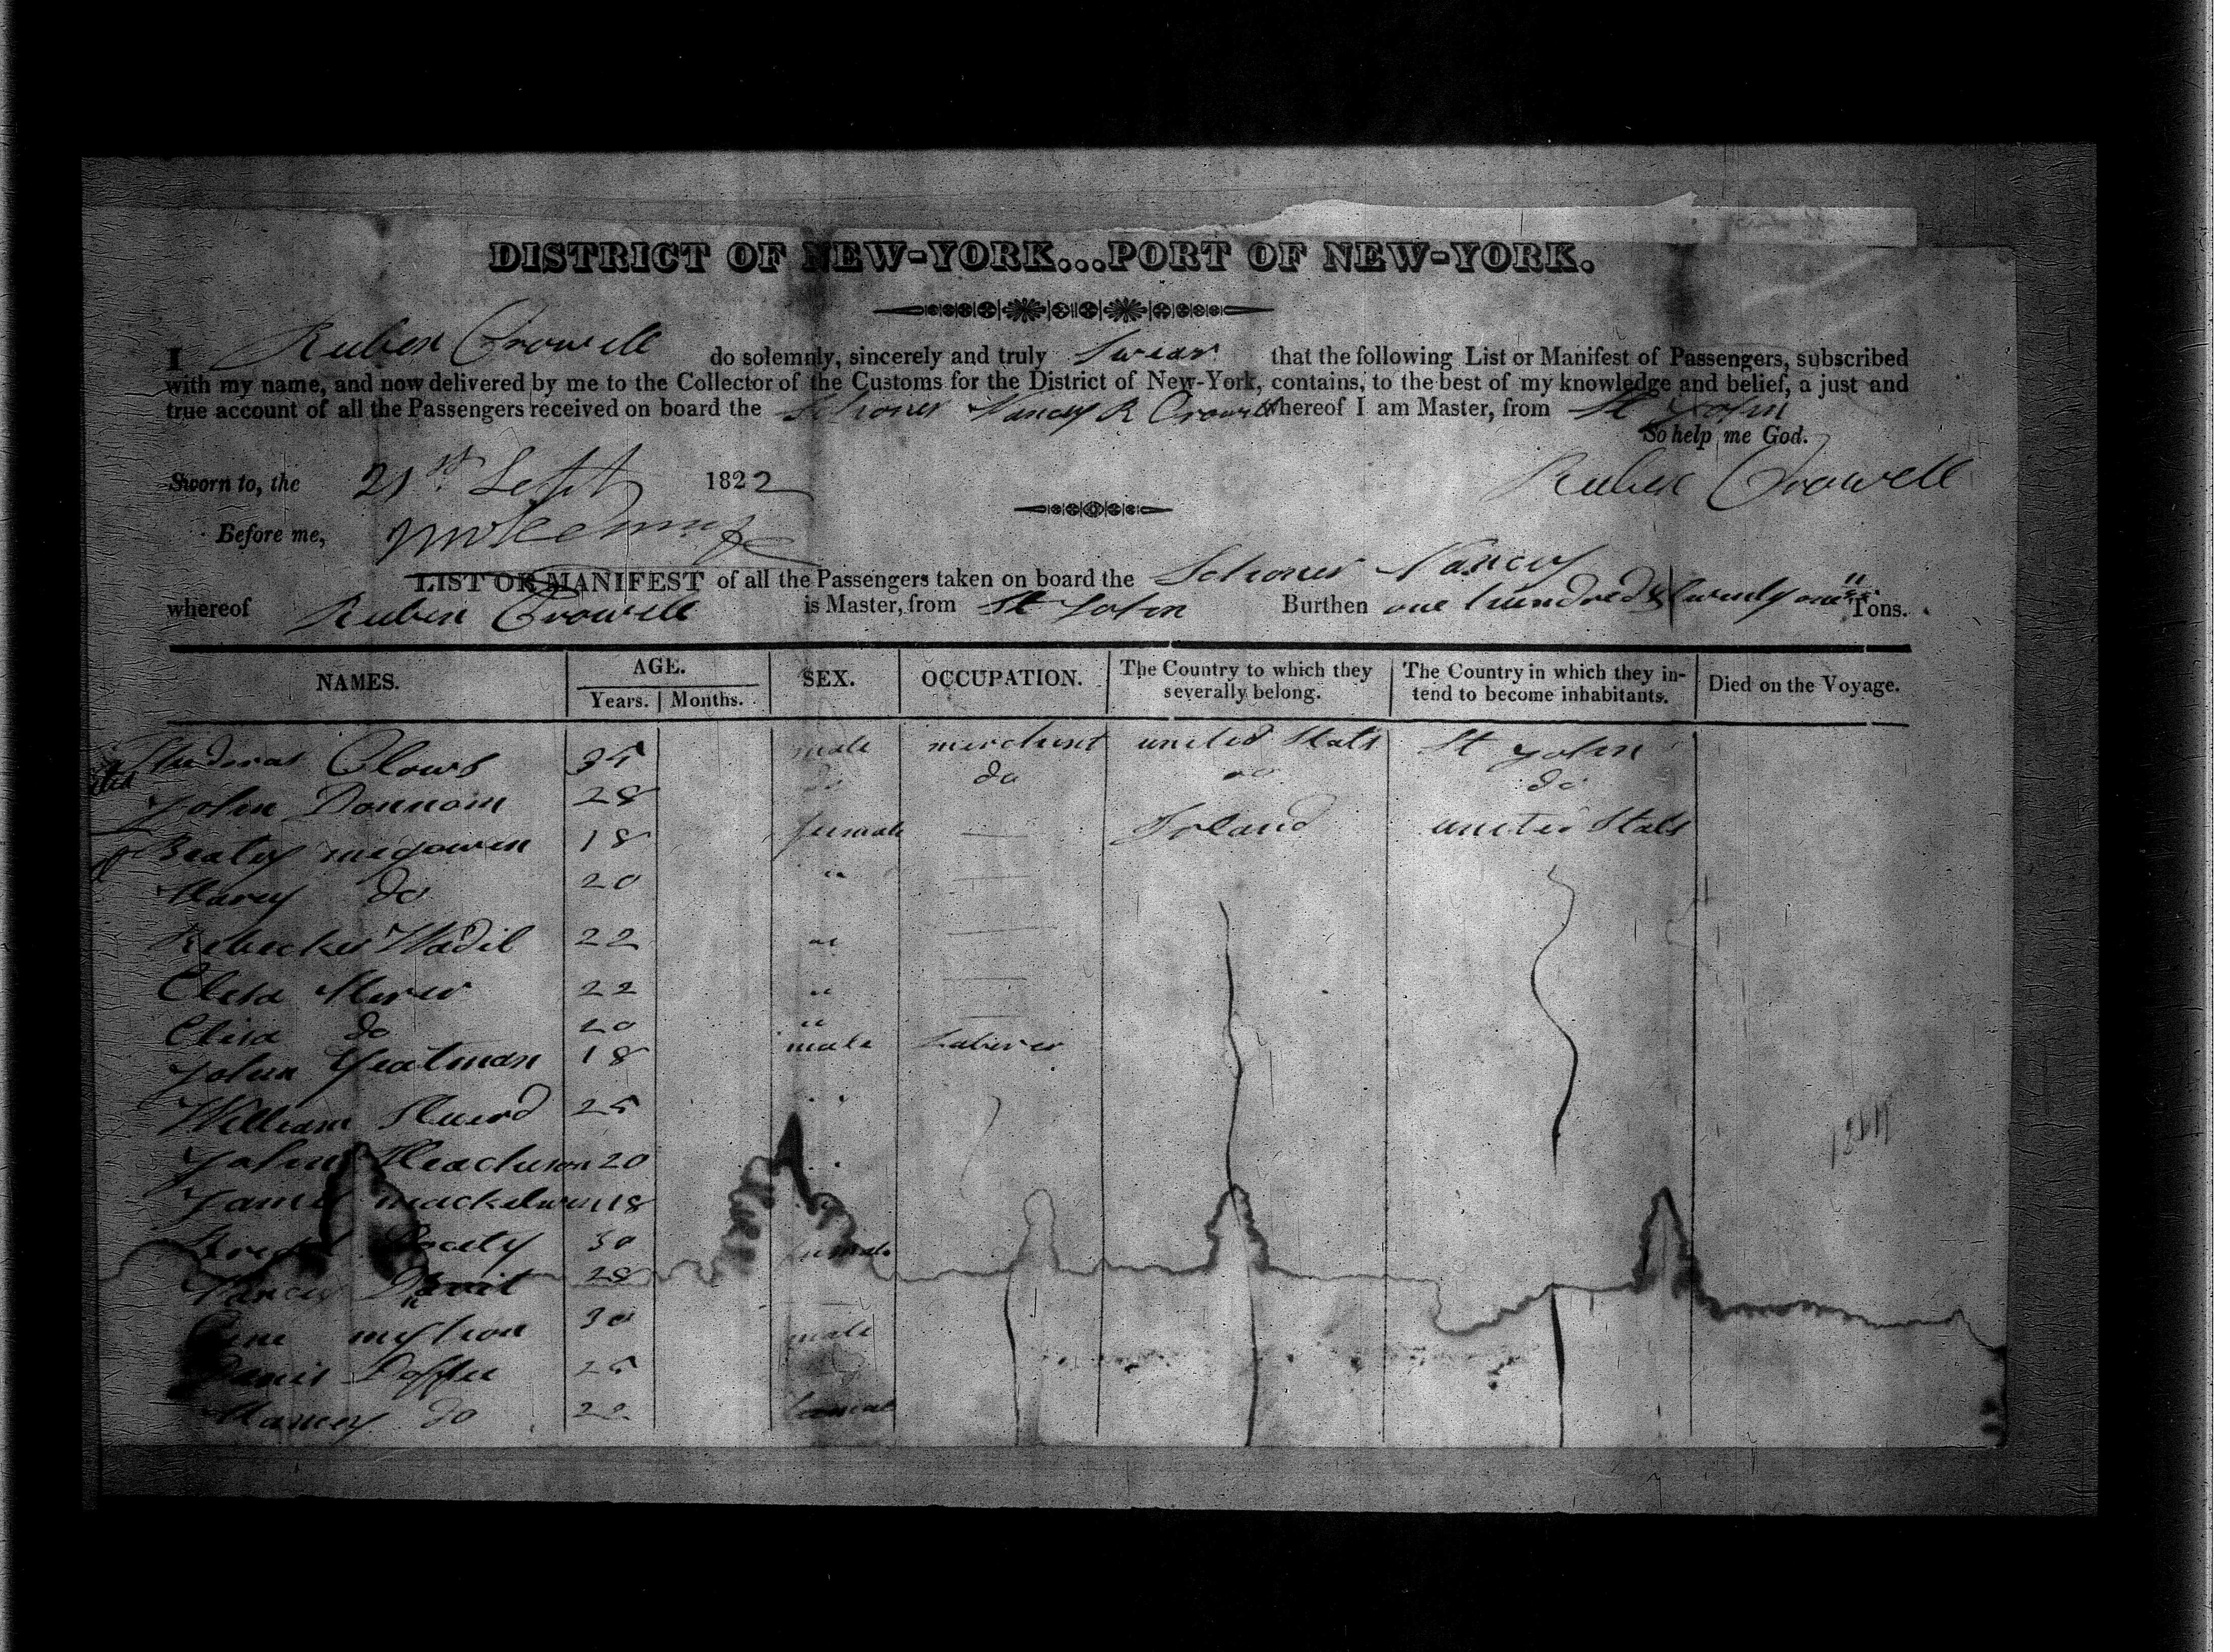 DISTRICT OF NEW-YORK...PORT OF NEW-YORK.
I Ruben Crowell do solemnly, sincerely and truly Swear that the following List or Manifest of Passengers, subscribed
with my name, and now delivered by me to the Collector of the Customs for the District of New-York, contains, to the best of my knowledge and belief, a just and
true account of all the Passengers received on board the Schoner Nancy R Crowell whereof I am Master, from St John
So help me God.
Sworn to, the 21st Sept 1822 Ruben Crowell
Before me,
LIST OR MANIFEST of all the Passengers taken on board the Schoner Nancy
whereof Ruben Crowell is Master, from St John Burthen one hundred & twenty one Tons.
NAMES. AGE. SEX. OCCUPATION. The Country to which they severally belong. The Country in which they intend to become inhabitants. Died on the Voyage.
Years. Months.
Clows 35 male merchant united Stats St John
John Donnom 28 do do do do
Beatey megowen 18 female — Irland united Stats
Marey do 20 "
Rebecker Wadil 22 "
Elisa 22 "
Elisa do 20 "
John Yeatman 18 male Laberer
William 25 "
John 20 "
James mackelwin 18
30 female
Nancy 28
30 male
Daffee 25
do 22 female